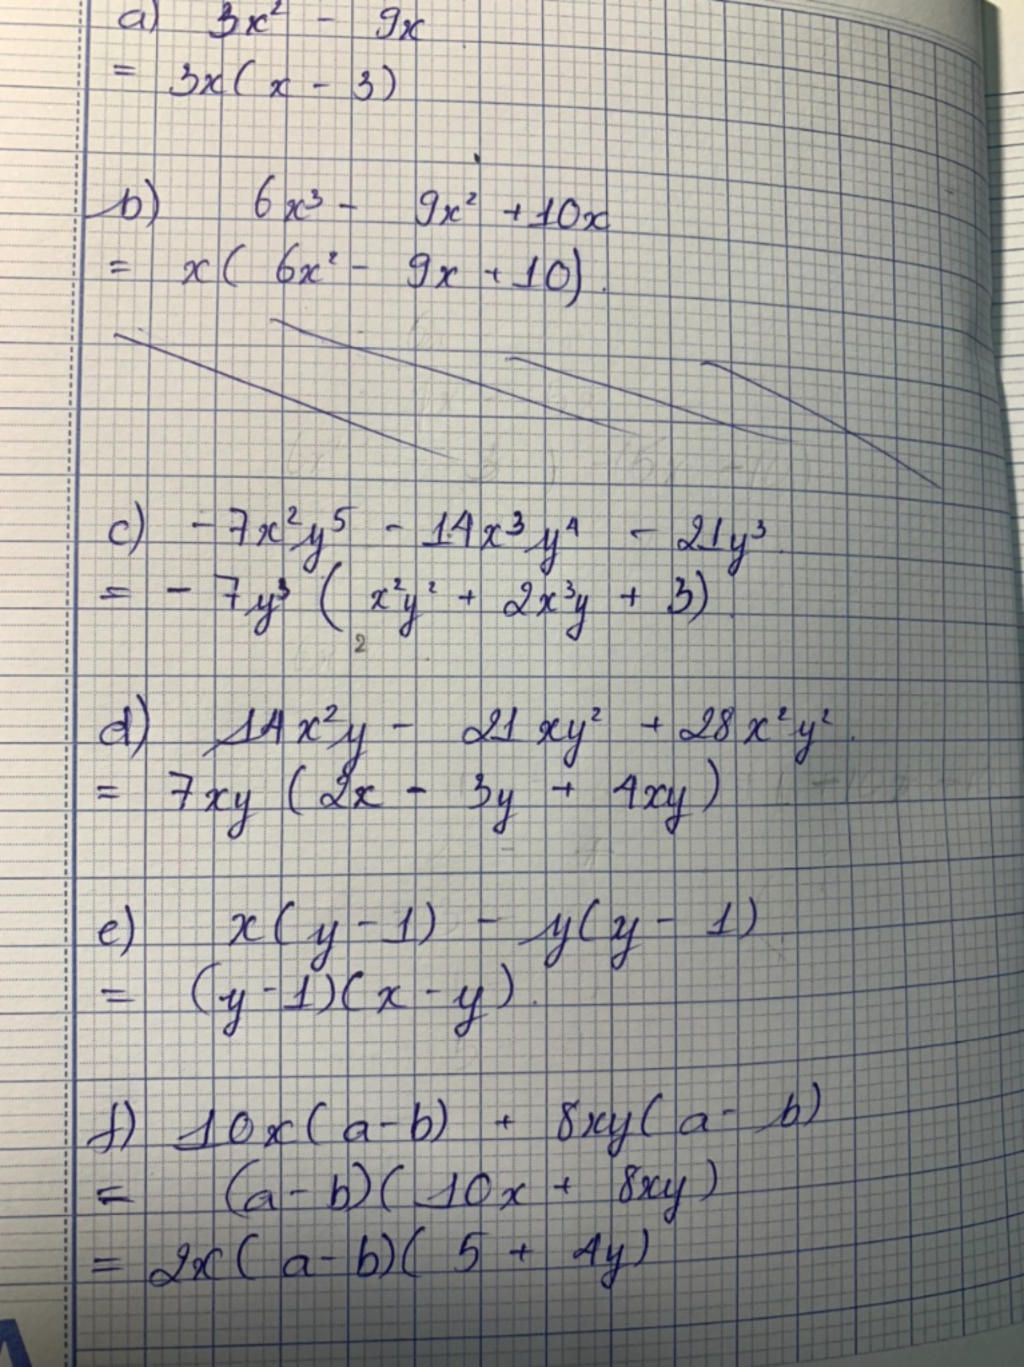 a) 3x² - 9x
= 3x(x - 3)
b) 6x³ - 9x² + 10x
= x(6x² - 9x + 10).
c) -7x²y⁵ - 14x³y⁴ - 21y³.
= -7y³(x²y² + 2x³y + 3).
2
d) 14x²y - 21xy² + 28x²y².
= 7xy(2x - 3y + 4xy)
e) x(y - 1) - y(y - 1)
= (y - 1)(x - y).
f) 10x(a - b) + 8xy(a - b)
= (a - b)(10x + 8xy)
= 2x(a - b)(5 + 4y)